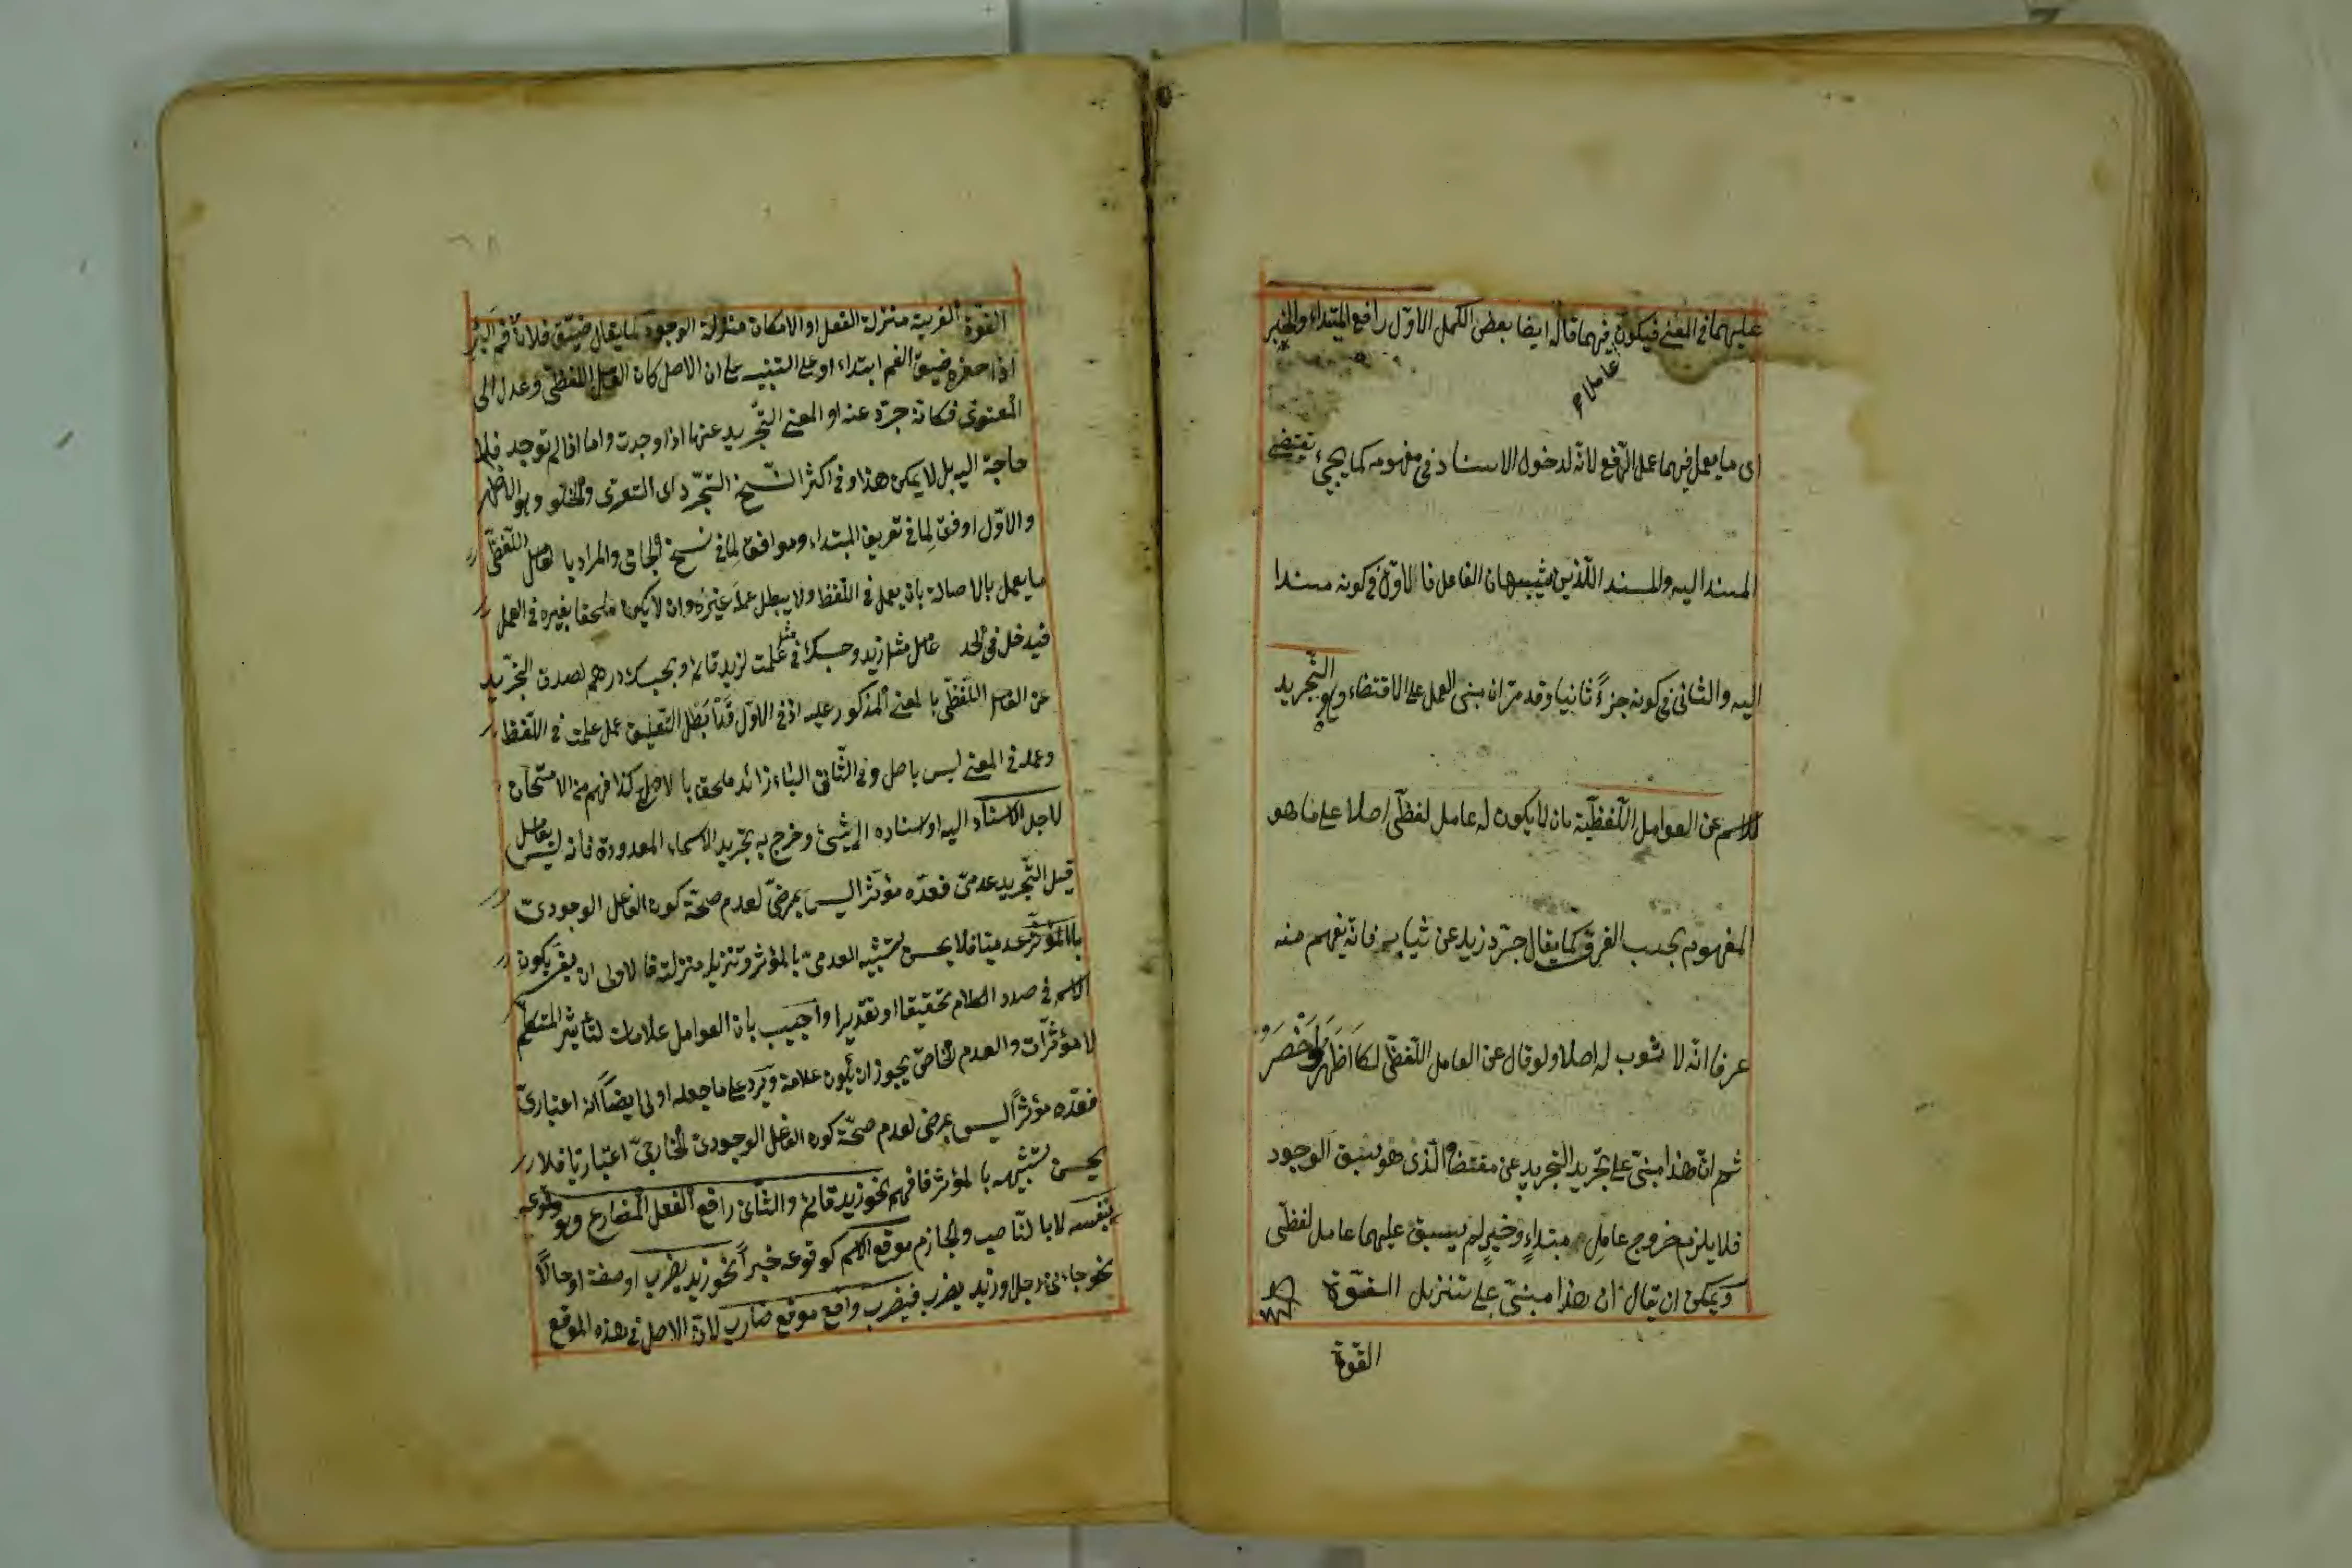 عليهما في المعنى فيكون فيهما قال ايضا بعض الكمل الاول رافع المبتداء والخبر
عاملا
اى ما يعمل فيهما عمل الرفع لانه لدخول الاسناد في مفهومه كما يجيء تقتضى
المسند اليه والمسند اللذين يشبهان الفاعل فالاول في كونه مسندا
اليه والثاني في كونه جزءً ثانيا وقد مر ان مبنى العمل على الاقتضاء وهو التجريد
للاسم عن العوامل اللفظية بان لا يكون له عامل لفظى اصلا على ما هو
المفهوم بحسب الفرق كما يقال جرد زيد عن ثيابه فانه يفهم منه
عرفا انه لا ثوب له اصلا ولو قال عن العامل اللفظى لكا اظهر واخصر
ثم ان هذا مبنى على تجريد التجريد عن مقتضاه الذى هو سبق الوجود
فلا يلزم خروج عامل مبتداءٍ وخبرٍ لم يسبق عليهما عامل لفظى
ويمكن ان يقال ان هذا مبنى على تنزيل القوة
القوة
القوة القريبة منزلة الفعل او الامكان منزلة الوجود كما يقال ضيق فلان فم البئر
اذا حفره ضيق الفم ابتداء او على التنبيه على ان الاصل كان العامل اللفظى وعدل الى
المعنوى فكانه جرد عنه او المعنى التجريد عنها اذا وجدت واما اذا لم توجد فلا
حاجة اليه بل لا يمكن هذا وفى اكثر النسخ التجرد اى التعرى والخلو وهو الاظهر
والاول اوفق لما في تعريف المبتداء وموافق لما في نسخ الجامى والمراد بالعامل اللفظى
ما يعمل بالاصالة بان يعمل في اللفظ ولا يبطل عمله غيره وان لا يكون ملحقا بغيره في العمل
فيدخل في الحد عامل مثل زيد وحسبك في مثل علمت لزيد قائم وبحسبك درهم لصدق التجريد
عن العامل اللفظى بالمعنى المذكور عليه اذ في الاول قد ابطل التعليق عمل علمت في اللفظ
وعمله في المعنى ليس باصل وفى الثانى الباء زائد ملحق بالاصلى كذا فهم من الامتحان
لاجل الاسناد اليه او اسناده الى شىء وخرج به تجريد الاسماء المعدودة فانه ليس بعامل
قيل التجريد عدمى فعده مؤثرا ليس بمرضى لعدم صحة كون الفاعل الوجودى
بالمؤثر عدميا فلا يحسن تشبيه العدمى بالمؤثر وتنزيله منزلته فالاولى ان يفسر بكون
الاسم في صدر الكلام تحقيقا او تقديرا واجيب بان العوامل علامات لتأثير المتكلم
لا مؤثرات والعدم الخاص يجوز ان يكون علامة ويرد على ما جعله اولى ايضا انه اعتبارى
فعده مؤثرا ليس بمرضى لعدم صحة كون الفاعل الوجودى الخارجى اعتباريا فلا
يحسن تشبيهه بالمؤثر فافهم نحو زيد قائم والثانى رافع الفعل المضارع وهو وقوعه
بنفسه لا بالناصب والجازم موقع الاسم كوقوعه خبراً نحو زيد يضرب او صفة او حالاً
نحو جاءنى رجل او زيد يضرب فيضرب واقع موقع ضارب لان الاصل في هذه الموقع